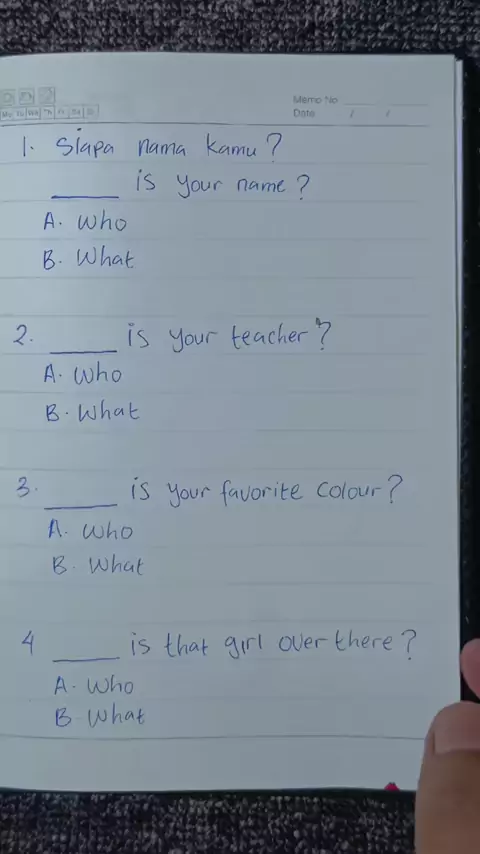 Memo No
Date / /
Mo Tu We Th Fr Sa Su
1. Siapa nama kamu?
______ is your name?
A. Who
B. What
2. ______ is your teacher?
A. Who
B. What
3. ______ is your favorite colour?
A. Who
B. What
4 ______ is that girl over there?
A. Who
B. What